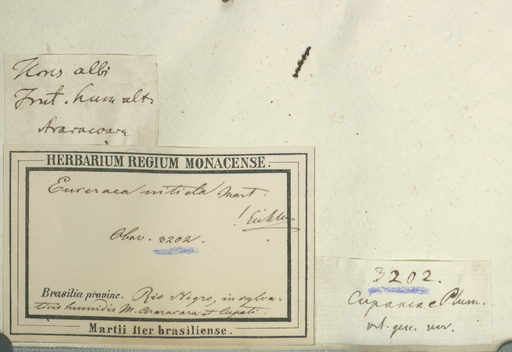 Flores albi
Frut. hum. alt.
Araracoara
HERBARIUM REGIUM MONACENSE.
Euceraea nitida Mart.
! Eichler
Obsv. 3202.
Brasilia provinc. Rio Negro, in sylva-
ticis humidis M. Araracara et Cupati
Martii Iter brasiliense.
3202.
Cupaniae Plum.
vel. gen. nov.